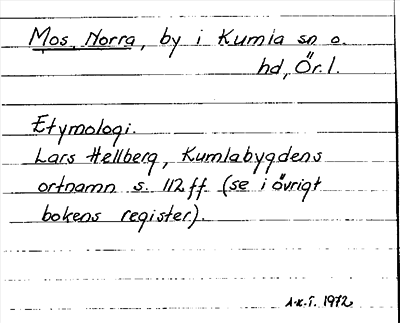 Mos, Norra, by i Kumla sn o.
hd, Ör. l.
Etymologi.
Lars Hellberg, Kumlabygdens
ortnamn s. 112 ff. (se i övrigt
bokens register).
A.K.T. 1972